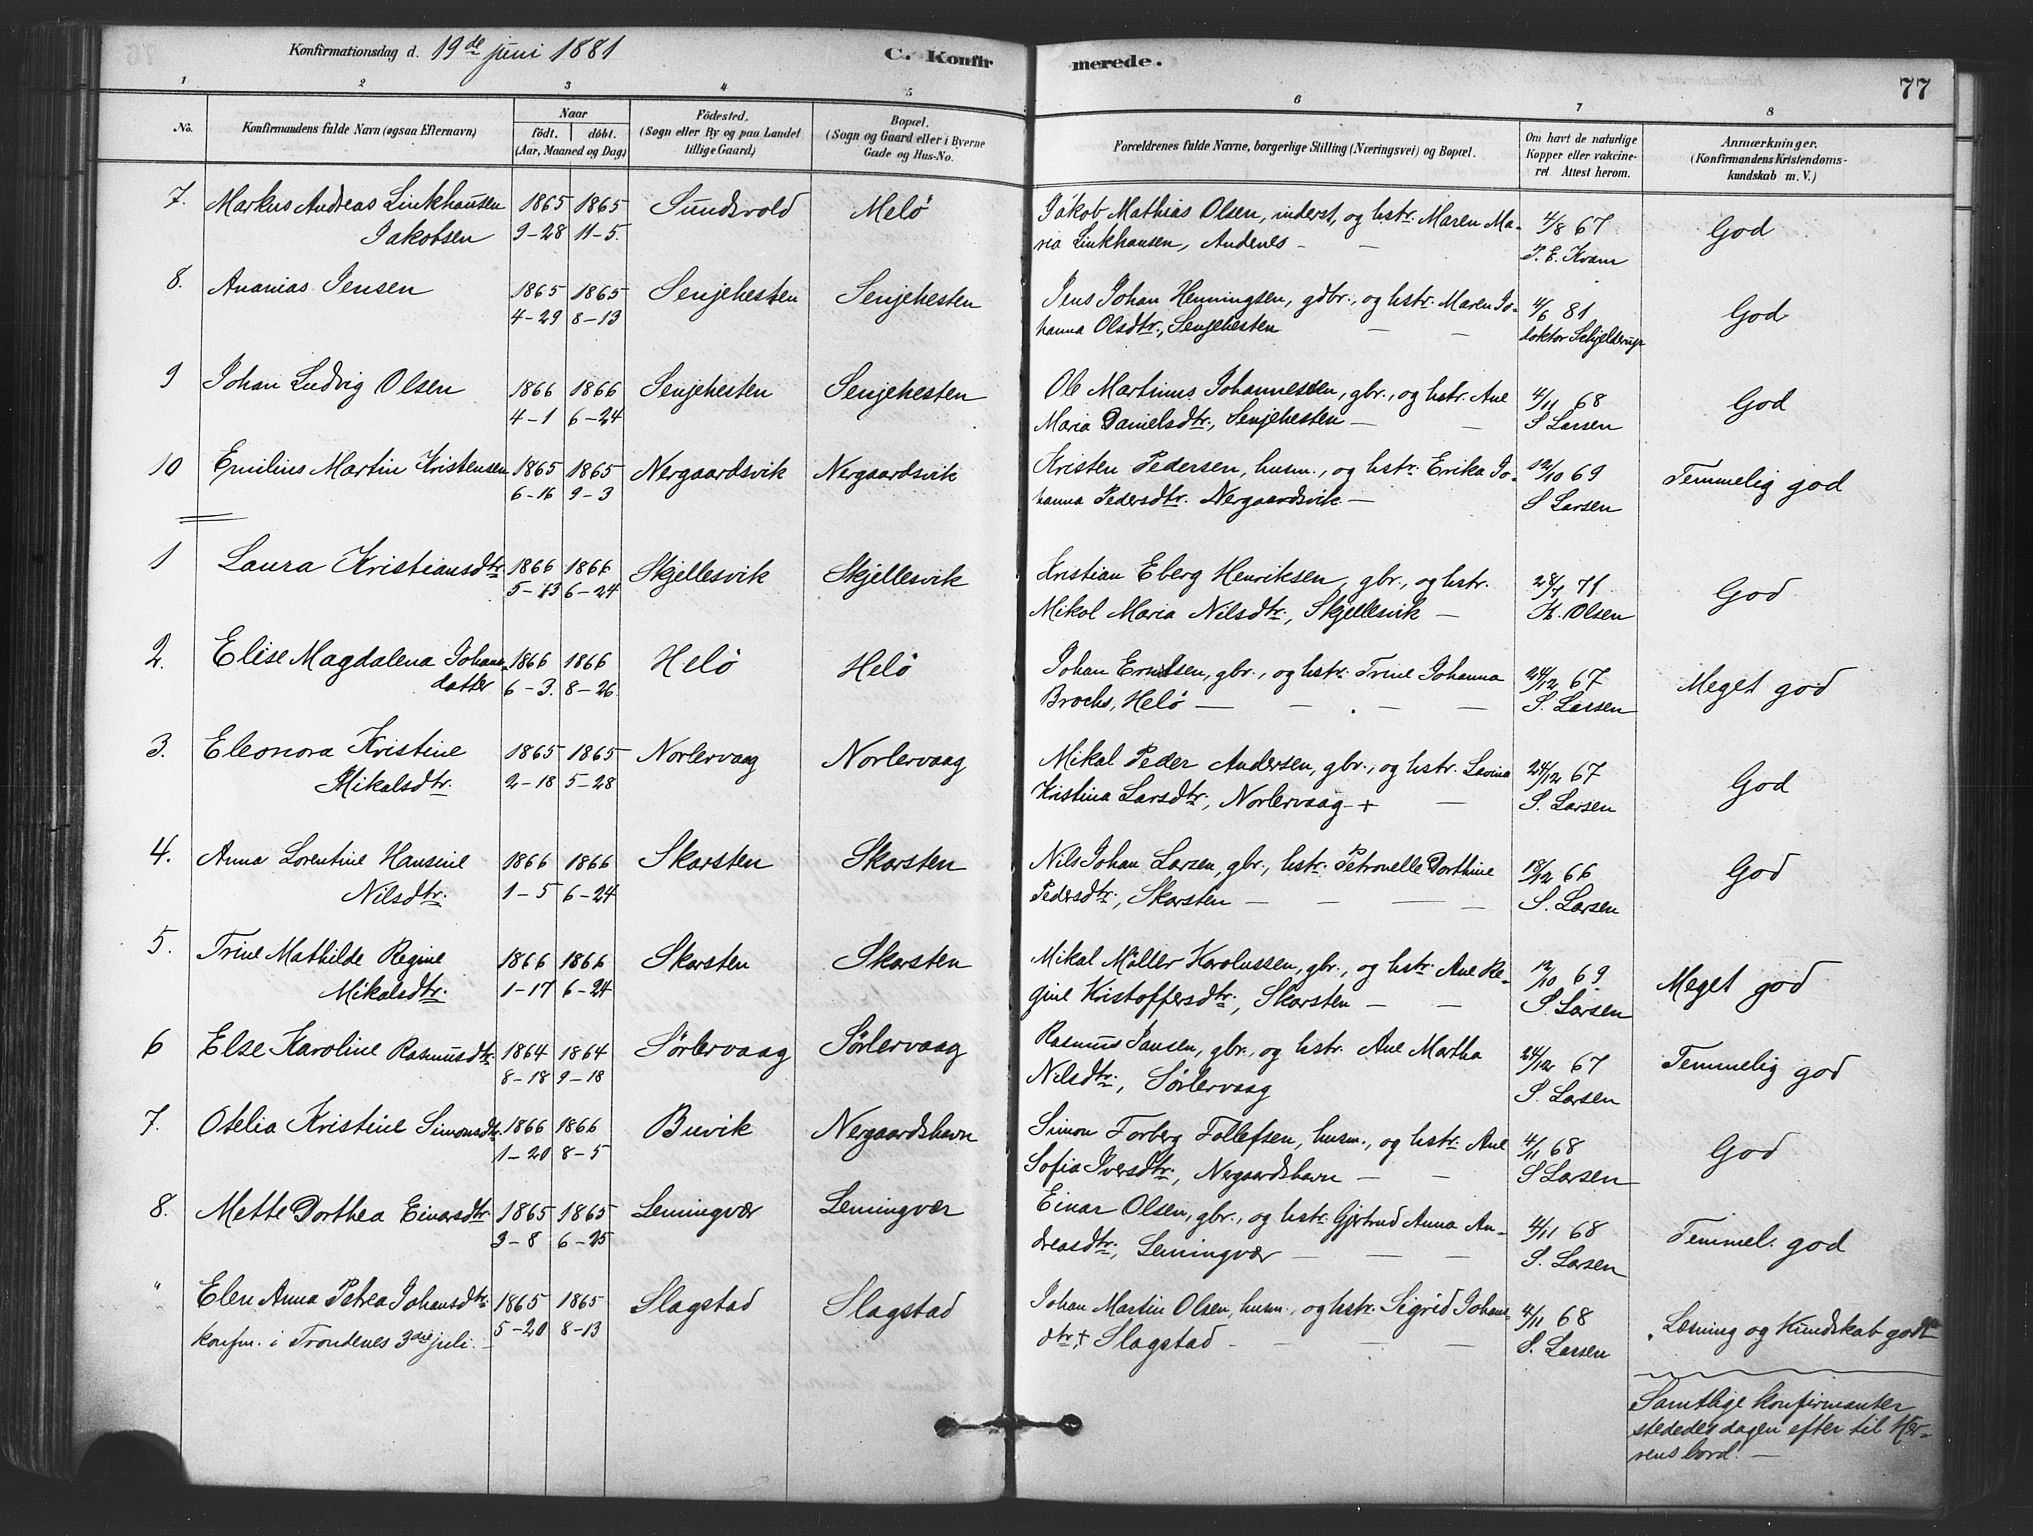 Konfirmationsdag d. 19de juni 1881
C. Konfirmerede.
77
1 2 3 4 5 6 7 8
No.
Konfirmandens fulde Navn (ogsaa Efternavn)
Naar
födt. döbt.
(Aar, Maaned og Dag)
Födested.
(Sogn eller By og paa Landet
tillige Gaard)
Bopæl.
(Sogn og Gaard eller i Byerne
Gade og Hus-No.
Forældrenes fulde Navne, borgerlige Stilling (Næringsvei) og Bopæl.
Om havt de naturlige
Kopper eller vakcine-
ret. Attest herom.
Anmærkninger.
(Konfirmandens Kristendoms-
kundskab m. V.)
7. Markus Andreas Linkhausen 1865 1865 Sundsvold Melö Jakob Mathias Olsen, inderst, og hstr. Maren Ma- 4/8 67 God
Jakobsen 9-28 11-5. ria Linkhausen, Andenes — — P. E. Kvam
8. Ananias Jensen 1865 1865 Senjehesten Senjehesten Jens Johan Henningsen, gdbr., og hstr. Maren Jo- 4/6 81 God
4-29 8-13 hanna Olsdtr., Senjehesten — — doktor Schjelderup
9 Johan Ludvig Olsen 1866 1866 Senjehesten Senjehesten Ole Martinus Johannessen, gbr., og hstr. Ane 4/11 68 God
4-1 6-24 Maria Danielsdtr., Senjehesten — — S Larsen
10 Emilius Martin Kristensen 1865 1865 Nergaardsvik Nergaardsvik Kristen Pedersen, husm., og hstr. Erika Jo- 12/10 69 Temmelig god
6-16 9-3 hanna Pedersdtr. Nergaardsvik — S Larsen
1 Laura Kristiansdtr. 1866 1866 Skjellesvik Skjellesvik Kristian Eberg Henriksen, gbr., og hstr. 28/7 71 God
5-13 6-24 Mikol Maria Nilsdtr., Skjellesvik — H. Olsen
2. Elise Magdalena Johans- 1866 1866 Helö Helö Johan Erntsen, gbr., og hstr. Trine Johanna 24/12 67 Meget god
datter 6-3. 8-26. Brochs, Helö — — — — S. Larsen
3. Eleonora Kristine 1865 1865 Norlervaag Norlervaag Mikal Peder Andersen, gbr., og hstr. Lavina 24/12 67 God
Mikalsdtr. 2-18 5-28 Kristina Larsdtr., Norlervaag + — S. Larsen
4. Anna Lorentine Hansine 1866 1866 Skarsten Skarsten Nils Johan Larsen, gbr., hstr. Petronelle Dorthine 18/12 66 God
Nilsdtr. 1-5 6-24 Pedersdtr., Skarsten — — — — S. Larsen
5. Trine Mathilde Regine 1866 1866 Skarsten Skarsten Mikal Möller Karolussen, gbr., og hstr. Ane Re- 12/10 69. Meget god
Mikalsdtr. 1-17 6-24 gine Kristoffersdtr., Skarsten — — S. Larsen
6 Else Karoline Rasmusdtr. 1864 1864 Sörlervaag Sörlervaag Rasmus Jansen, gbr., og hstr. Ane Martha 24/12 67 Temmelig god
8-18 9-18 Nilsdtr., Sörlervaag S. Larsen
7. Otelia Kristine Simonsdtr. 1866 1866 Buvik Nergaardshavn Simon Forberg Tollefsen, husm., og hstr. Ane 4/11 68 God
1-20 8-5 Sofia Iversdtr., Nergaardshavn — — S Larsen
8. Mette Dorthea Einarsdtr. 1865 1865 Lemingvær Lemingvær Einar Olsen, gbr., og hstr. Gjertrud Anna An- 4/11 68 Temmel. god
3-8 6-25 dreasdtr., Lemingvær — — — S. Larsen
" Elen Anna Petrea Johansdtr. 1865 1865 Slagstad Slagstad Johan Martin Olsen, husm., og hstr. Sigrid Johans- 4/11 68 Læsning og Kundskab godt
konfm. i Trondenes 3die juli. — 5-20 8-13 dtr. +, Slagstad — — — S. Larsen
Samtlige konfirmanter
stededes dagen efter til Her-
rens bord. —